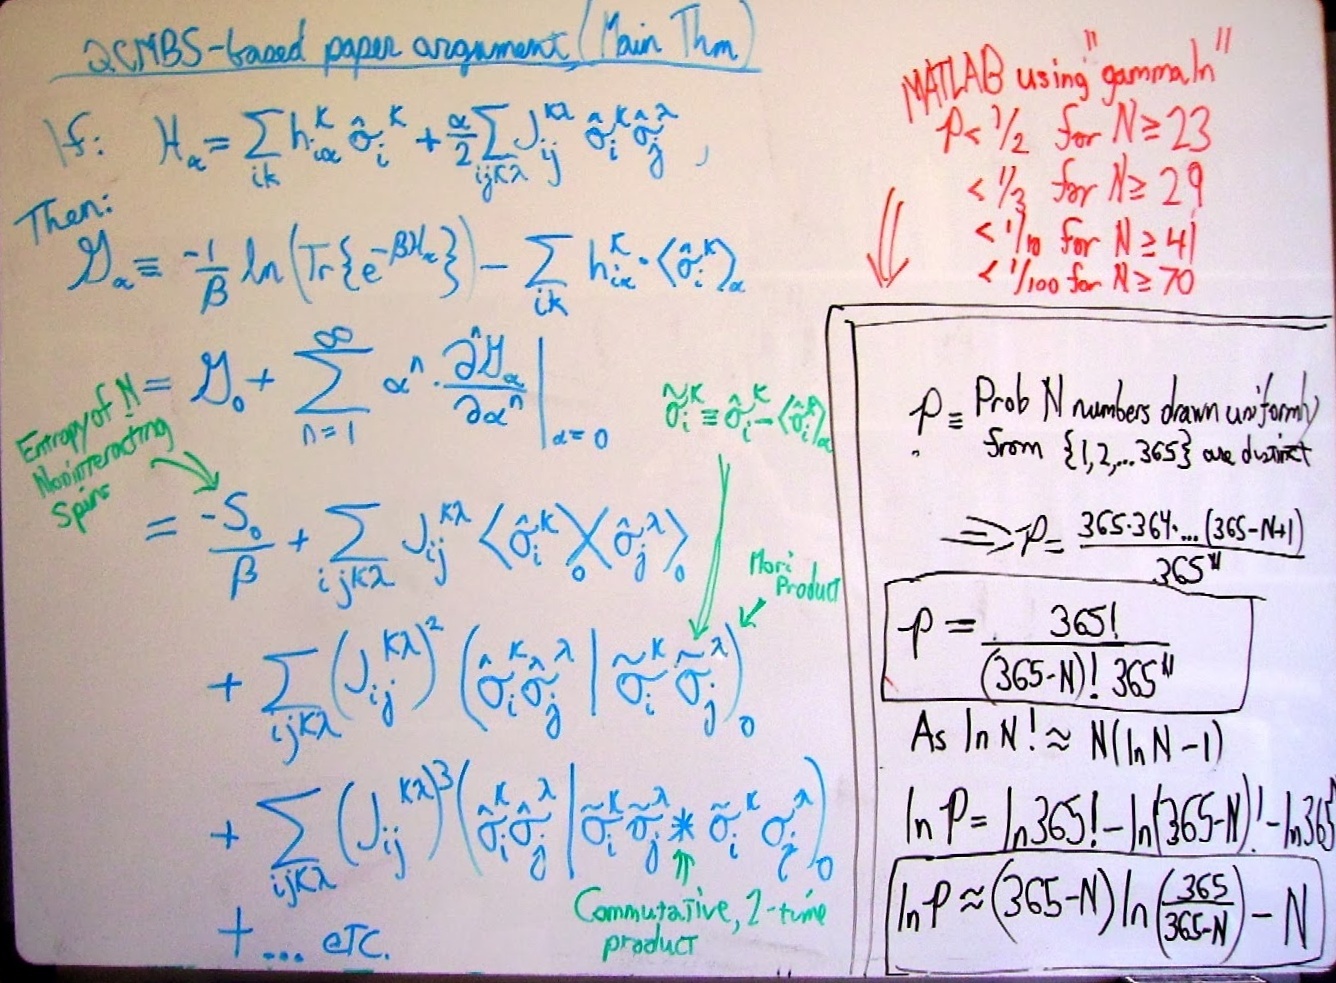 QCMBS-based paper argument (Main Thm)
If: H_α = Σ_{ik} h_{iα}^κ σ̂_i^κ + α/2 Σ_{ijκλ} J_{ij}^{κλ} σ̂_i^κ σ̂_j^λ ,
Then:
𝒢_α ≡ -1/β ln(Tr{e^{-βH_α}}) - Σ_{ik} h_{iα}^κ · ⟨σ̂_i^κ⟩_α
= 𝒢_0 + Σ_{n=1}^∞ α^n · ∂^n 𝒢_α / ∂α^n |_{α=0}
Entropy of N
Noninteracting
Spins
σ̃_i^κ ≡ σ̂_i^κ - ⟨σ̂_i^κ⟩_α
= -S_0/β + Σ_{ijκλ} J_{ij}^{κλ} ⟨σ̂_i^κ⟩_0 ⟨σ̂_j^λ⟩_0
Mori
Product
+ Σ_{ijκλ} (J_{ij}^{κλ})^2 (σ̂_i^κ σ̂_j^λ | σ̃_i^κ σ̃_j^λ)_0
+ Σ_{ijκλ} (J_{ij}^{κλ})^3 (σ̂_i^κ σ̂_j^λ | σ̃_i^κ σ̃_j^λ * σ̃_i^κ σ_j^λ)_0
Commutative, 2-time
product
+ ... etc.
MATLAB using "gammaln"
p < 1/2 for N ≥ 23
< 1/3 for N ≥ 29
< 1/10 for N ≥ 41
< 1/100 for N ≥ 70
p ≡ Prob N numbers drawn uniformly
from {1,2,...365} are distinct
⇒ p = 365·364·...(365-N+1) / 365^N
p = 365! / (365-N)! 365^N
As ln N! ≈ N(ln N - 1)
ln p = ln 365! - ln(365-N)! - ln 365^N
ln p ≈ (365-N) ln(365/(365-N)) - N